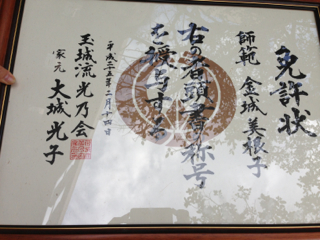 免許状
師範 金城美根子
右の者頭書称号
を授与する
平成二五年二月十四日
玉城流光乃会
家元 大城光子